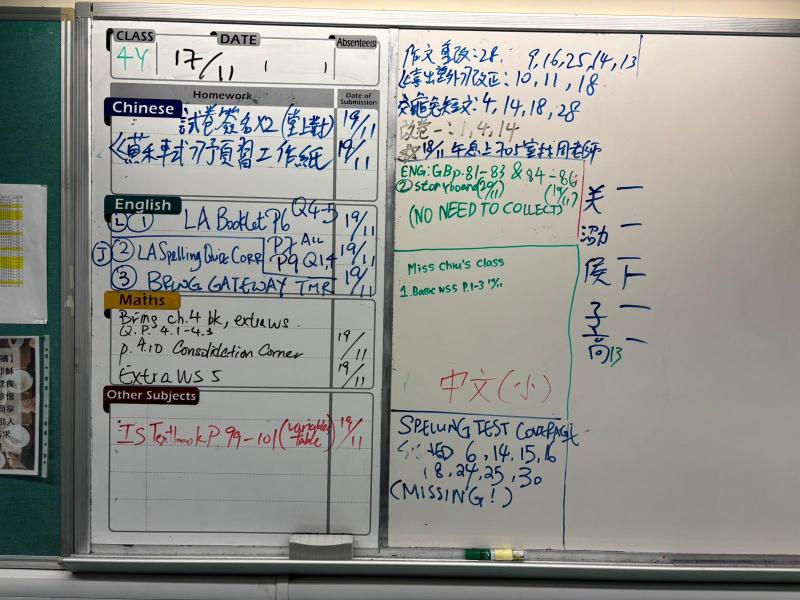 CLASS DATE Absentee(s)
4Y 17/11
Homework Date of Submission
Chinese
試卷簽名x2 (堂上對) 19/11
預習工作紙 19/11
English
① LA Booklet P6 Q4-5 19/11
② LA Spelling Quiz Corr P7 All P9 Q1,4 19/11
③ BRING GATEWAY TMR 19/11
Maths
Bring ch.4 bk, extra ws.
Q.P. 4.1-4.3
p. 4.10 Consolidation Corner 19/11
Extra WS 5 19/11
Other Subjects
IS Textbook P 99-101 (variables table) 19/11
作文重改: 28. 9, 16, 25, 14, 13
改正: 10, 11, 18
4, 14, 18, 28
改卷一: 1, 4, 14
☆ 18/11 午息上 705室找周老師
ENG: GB p.81-83 & 84-86
② storyboard (20/11) (19/11)
(NO NEED TO COLLECT)
Miss Chiu's class
1. Basic WS5 P.1-3 19/11
中文(小)
SPELLING TEST COVERAGE
6, 14, 15, 16
18, 24, 25, 30
(MISSING!)
13